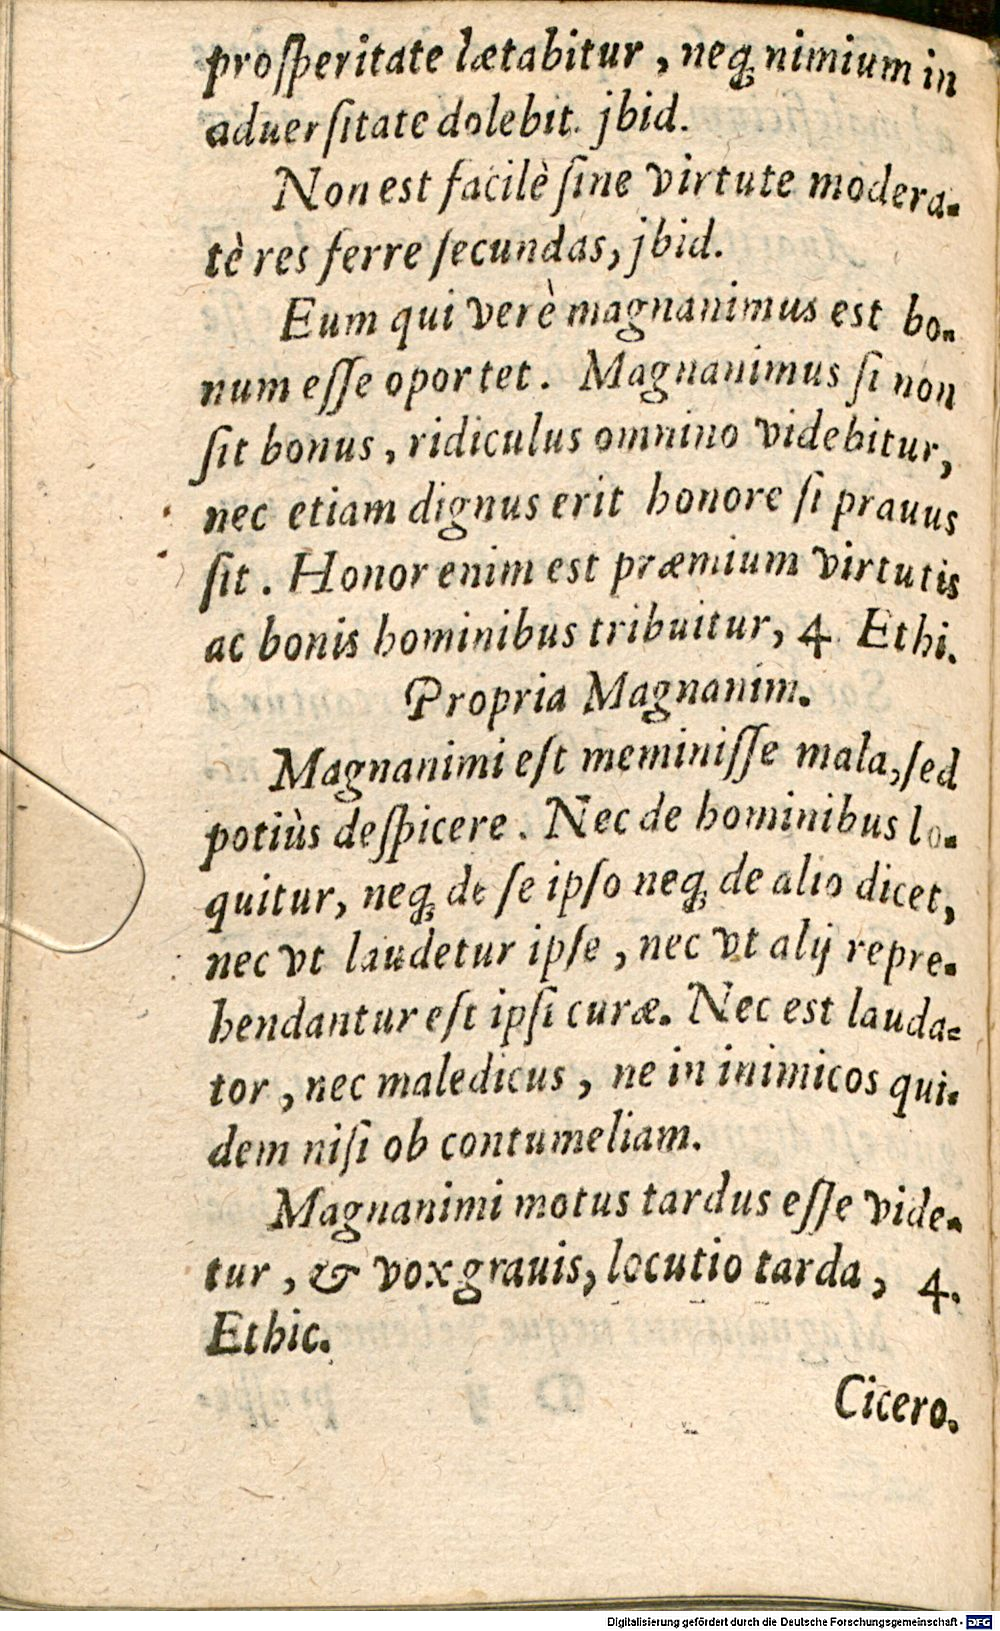 proſperitate lætabitur, neq; nimium in
aduerſitate dolebit. jbid.
Non est facilè ſine virtute modera-
tè res ferre ſecundas, jbid.
Eum qui verè magnanimus est bo-
num eſſe oportet. Magnanimus ſi non
ſit bonus, ridiculus omnino videbitur,
nec etiam dignus erit honore ſi prauus
ſit. Honor enim est præmium virtutis
ac bonis hominibus tribuitur, 4. Ethi.
Propria Magnanim.
Magnanimi eſt meminiſſe mala, ſed
potiùs deſpicere. Nec de hominibus lo-
quitur, neq; de ſe ipſo neq; de alio dicet,
nec vt laudetur ipſe, nec vt alij repre-
hendantur eſt ipſi curæ. Nec est lauda-
tor, nec maledicus, ne in inimicos qui-
dem niſi ob contumeliam.
Magnanimi motus tardus eſſe vide-
tur, & vox grauis, locutio tarda, 4.
Ethic.
Cicero.
Digitalisierung gefördert durch die Deutsche Forschungsgemeinschaft - DFG